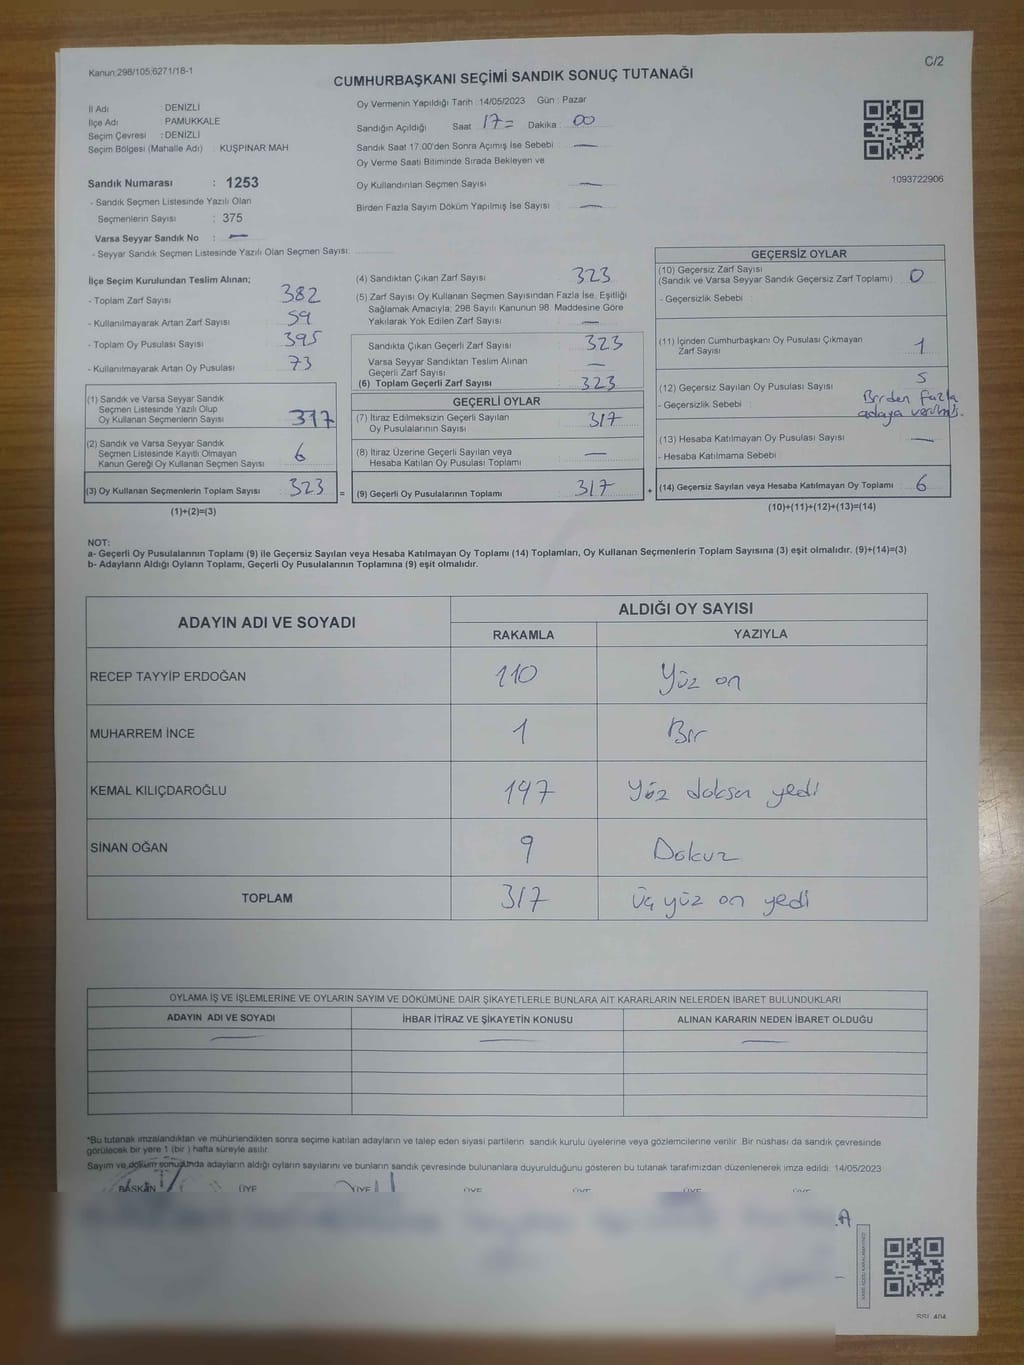 Kanun:298/105;6271/18-1
C/2
CUMHURBAŞKANI SEÇİMİ SANDIK SONUÇ TUTANAĞI
İl Adı : DENİZLİ
İlçe Adı : PAMUKKALE
Seçim Çevresi : DENİZLİ
Seçim Bölgesi (Mahalle Adı) : KUŞPINAR MAH
Sandık Numarası : 1253
- Sandık Seçmen Listesinde Yazılı Olan
Seçmenlerin Sayısı : 375
Varsa Seyyar Sandık No : —
- Seyyar Sandık Seçmen Listesinde Yazılı Olan Seçmen Sayısı:
Oy Vermenin Yapıldığı Tarih : 14/05/2023 Gün : Pazar
Sandığın Açıldığı Saat 17= Dakika : 00
Sandık Saat 17:00'den Sonra Açımış İse Sebebi : —
Oy Verme Saati Bitiminde Sırada Bekleyen ve
Oy Kullandırılan Seçmen Sayısı —
Birden Fazla Sayım Döküm Yapılmış İse Sayısı —
1093722906
İlçe Seçim Kurulundan Teslim Alınan;
- Toplam Zarf Sayısı : 382
- Kullanılmayarak Artan Zarf Sayısı : 59
- Toplam Oy Pusulası Sayısı : 395
- Kullanılmayarak Artan Oy Pusulası : 73
(1) Sandık ve Varsa Seyyar Sandık
Seçmen Listesinde Yazılı Olup
Oy Kullanan Seçmenlerin Sayısı : 317
(2) Sandık ve Varsa Seyyar Sandık
Seçmen Listesinde Kayıtlı Olmayan
Kanun Gereği Oy Kullanan Seçmen Sayısı : 6
(3) Oy Kullanan Seçmenlerin Toplam Sayısı : 323 =
(1)+(2)=(3)
(4) Sandıktan Çıkan Zarf Sayısı : 323
(5) Zarf Sayısı Oy Kullanan Seçmen Sayısından Fazla İse, Eşitliği
Sağlamak Amacıyla; 298 Sayılı Kanunun 98. Maddesine Göre
Yakılarak Yok Edilen Zarf Sayısı : —
Sandıkta Çıkan Geçerli Zarf Sayısı : 323
Varsa Seyyar Sandıktan Teslim Alınan
Geçerli Zarf Sayısı : —
(6) Toplam Geçerli Zarf Sayısı : 323
GEÇERLİ OYLAR
(7) İtiraz Edilmeksizin Geçerli Sayılan
Oy Pusulalarının Sayısı : 317
(8) İtiraz Üzerine Geçerli Sayılan veya
Hesaba Katılan Oy Pusulası Toplamı : —
(9) Geçerli Oy Pusulalarının Toplamı : 317 +
GEÇERSİZ OYLAR
(10) Geçersiz Zarf Sayısı
(Sandık ve Varsa Seyyar Sandık Geçersiz Zarf Toplamı) : 0
- Geçersizlik Sebebi :
(11) İçinden Cumhurbaşkanı Oy Pusulası Çıkmayan
Zarf Sayısı : 1
(12) Geçersiz Sayılan Oy Pusulası Sayısı : 5
- Geçersizlik Sebebi : Birden fazla
adaya verilmiş.
(13) Hesaba Katılmayan Oy Pusulası Sayısı : —
- Hesaba Katılmama Sebebi :
(14) Geçersiz Sayılan veya Hesaba Katılmayan Oy Toplamı : 6
(10)+(11)+(12)+(13)=(14)
NOT:
a- Geçerli Oy Pusulalarının Toplamı (9) ile Geçersiz Sayılan veya Hesaba Katılmayan Oy Toplamı (14) Toplamları, Oy Kullanan Seçmenlerin Toplam Sayısına (3) eşit olmalıdır. (9)+(14)=(3)
b- Adayların Aldığı Oyların Toplamı, Geçerli Oy Pusulalarının Toplamına (9) eşit olmalıdır.
ADAYIN ADI VE SOYADI ALDIĞI OY SAYISI
RAKAMLA YAZIYLA
RECEP TAYYİP ERDOĞAN 110 Yüz on
MUHARREM İNCE 1 Bir
KEMAL KILIÇDAROĞLU 197 Yüz doksan yedi
SİNAN OĞAN 9 Dokuz
TOPLAM 317 Üç yüz on yedi
OYLAMA İŞ VE İŞLEMLERİNE VE OYLARIN SAYIM VE DÖKÜMÜNE DAİR ŞİKAYETLERLE BUNLARA AİT KARARLARIN NELERDEN İBARET BULUNDUKLARI
ADAYIN ADI VE SOYADI İHBAR İTİRAZ VE ŞİKAYETİN KONUSU ALINAN KARARIN NEDEN İBARET OLDUĞU
— — —
*Bu tutanak imzalandıktan ve mühürlendikten sonra seçime katılan adayların ve talep eden siyasi partilerin sandık kurulu üyelerine veya gözlemcilerine verilir. Bir nüshası da sandık çevresinde
görülecek bir yere 1 (bir) hafta süreyle asılır.
Sayım ve döküm sonucunda adayların aldığı oyların sayılarını ve bunların sandık çevresinde bulunanlara duyurulduğunu gösteren bu tutanak tarafımızdan düzenlenerek imza edildi. 14/05/2023
BAŞKAN ÜYE ÜYE ÜYE ÜYE ÜYE ÜYE